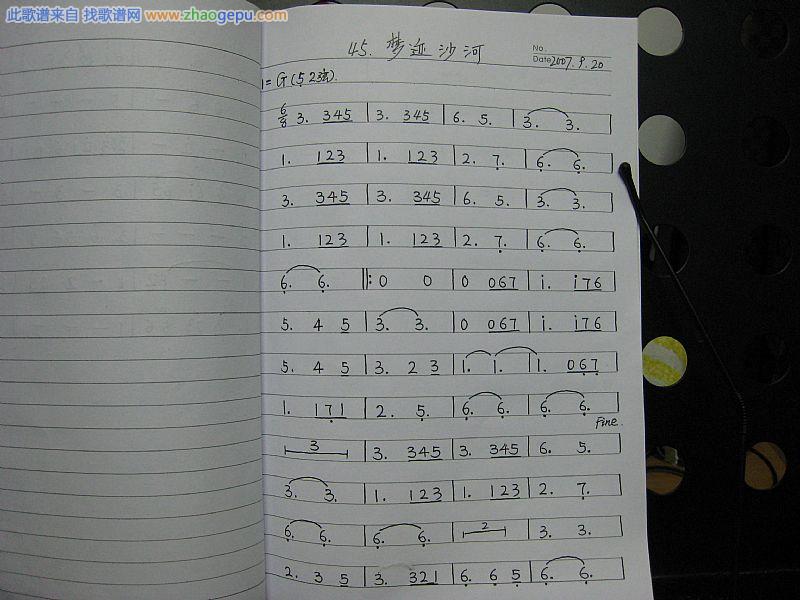 此歌谱来自 找歌谱网 www.zhaogepu.com
45. 梦逐沙河
No.
Date 2007.9.20
1=G(5̣ 2弦).
6/8 3. 345 | 3. 345 | 6. 5. | 3. 3. |
1. 123 | 1. 123 | 2. 7̣. | 6̣. 6̣. |
3. 345 | 3. 345 | 6. 5. | 3. 3. |
1. 123 | 1. 123 | 2. 7̣. | 6̣. 6̣. |
6̣. 6̣. ‖: 0 0 | 0 067 | i. i76 |
5. 4 5 | 3. 3. | 0 067 | i. i76 |
5. 4 5 | 3. 2 3 | 1. 1. | 1. 06̣7̣ |
1. 17̣1 | 2. 5̣. | 6̣. 6̣. | 6̣. 6̣. |
Fine.
3 | 3. 345 | 3. 345 | 6. 5. |
3. 3. | 1. 123 | 1. 123 | 2. 7̣. |
6̣. 6̣. | 6̣. 6̣. | 2 | 3. 3. |
2. 3 5 | 3. 321 | 6̣. 6̣ 5̣ | 6̣. 6̣. |